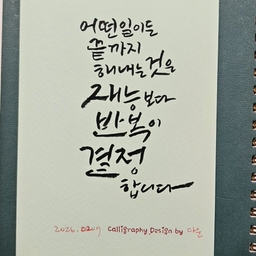 어떤일이든
끝까지
해내는것은
재능보다
반복이
결정
합니다
2026. 0207 Calligraphy Design by 다온